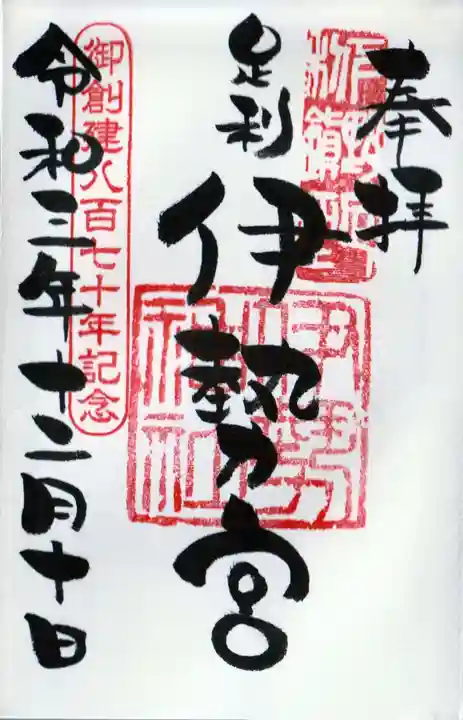 奉拝
足利
伊勢乃宮
伊勢神社
御創建八百七十年記念
令和三年十二月十日